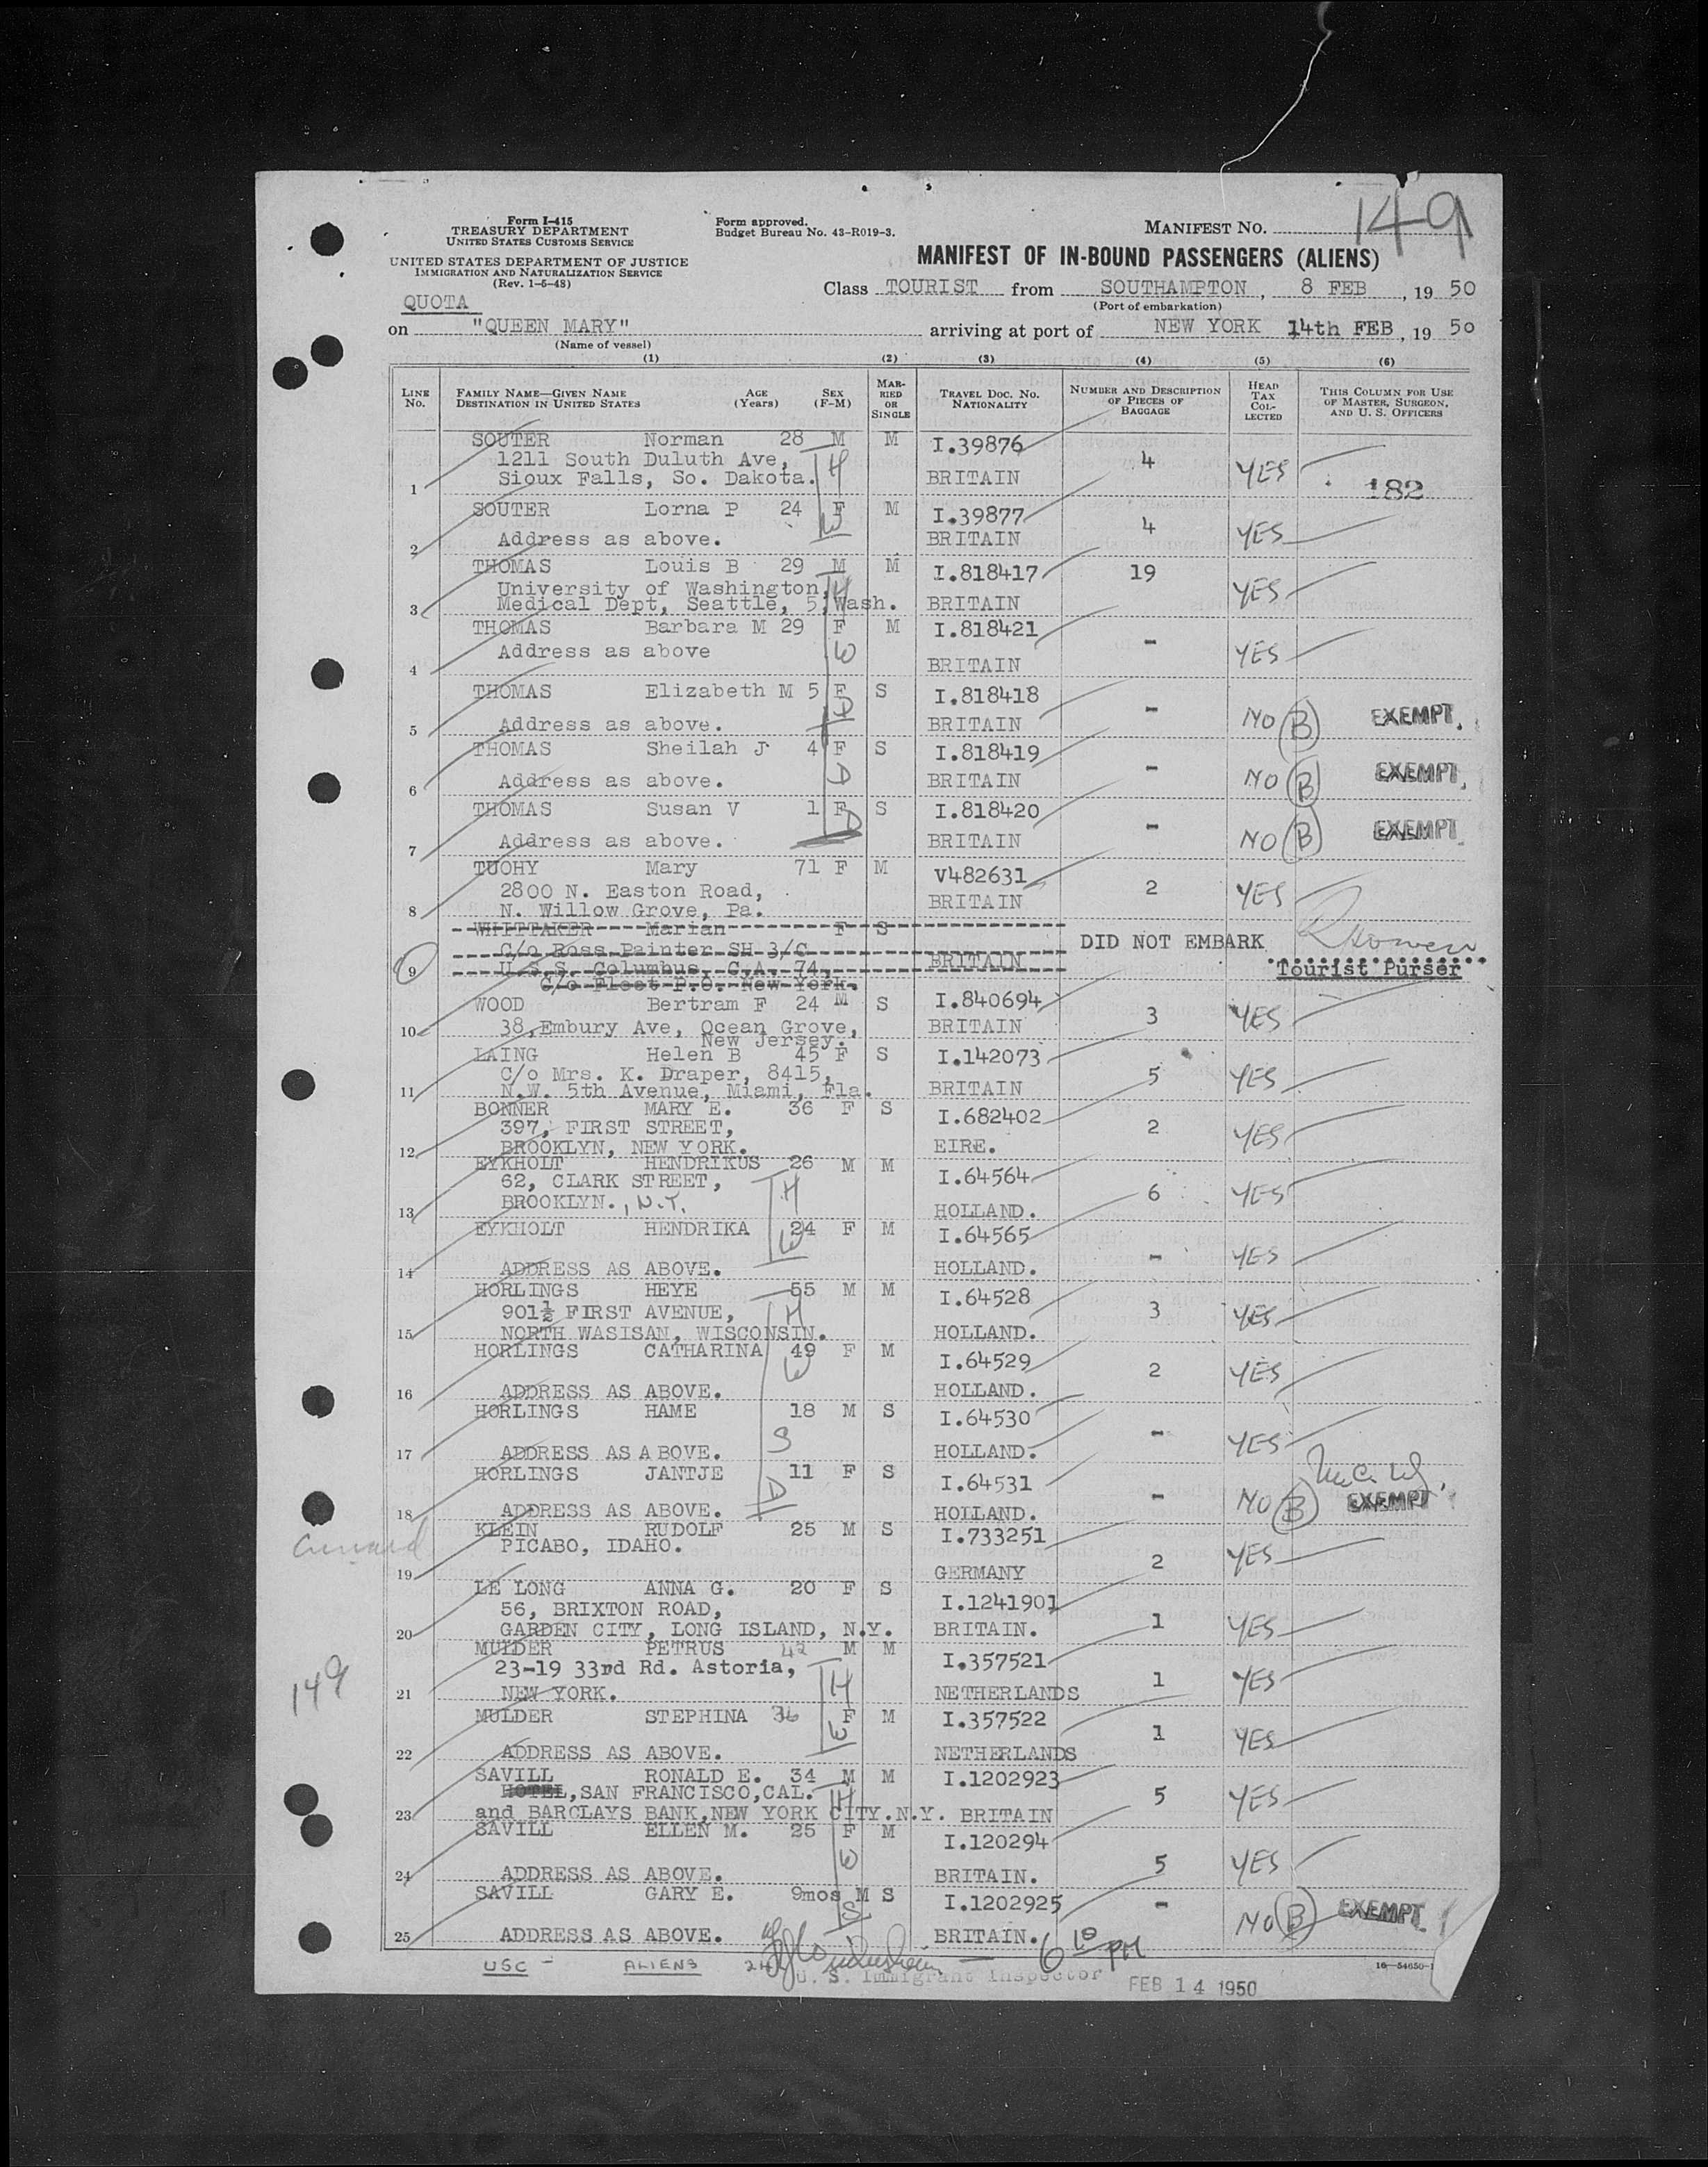 149
Form I-415
TREASURY DEPARTMENT
UNITED STATES CUSTOMS SERVICE
Form approved.
Budget Bureau No. 43-R019-3.
MANIFEST NO.
UNITED STATES DEPARTMENT OF JUSTICE
IMMIGRATION AND NATURALIZATION SERVICE
(Rev. 1-6-48)
MANIFEST OF IN-BOUND PASSENGERS (ALIENS)
QUOTA
Class TOURIST from SOUTHAMPTON, 8 FEB, 19 50
(Port of embarkation)
on "QUEEN MARY" arriving at port of NEW YORK 14th FEB, 19 50
(Name of vessel)
(1) (2) (3) (4) (5) (6)
LINE No. FAMILY NAME—GIVEN NAME DESTINATION IN UNITED STATES AGE (Years) SEX (F-M) MARRIED OR SINGLE TRAVEL DOC. NO. NATIONALITY NUMBER AND DESCRIPTION OF PIECES OF BAGGAGE HEAD TAX COLLECTED THIS COLUMN FOR USE OF MASTER, SURGEON, AND U. S. OFFICERS
SOUTER Norman 28 M M I.39876 4 YES
1211 South Duluth Ave, H
1 Sioux Falls, So. Dakota. BRITAIN 182
SOUTER Lorna P 24 F M I.39877 4 YES
W
2 Address as above. BRITAIN
THOMAS Louis B 29 M M I.818417 19 YES
University of Washington, H
3 Medical Dept, Seattle, 5, Wash. BRITAIN
THOMAS Barbara M 29 F M I.818421 - YES
4 Address as above W BRITAIN
THOMAS Elizabeth M 5 F S I.818418 - NO B EXEMPT.
5 Address as above. D BRITAIN
THOMAS Sheilah J 4 F S I.818419 - NO B EXEMPT.
6 Address as above. D BRITAIN
THOMAS Susan V 1 F S I.818420 - NO B EXEMPT
7 Address as above. D BRITAIN
TUOHY Mary 71 F M V482631 2 YES
2800 N. Easton Road, BRITAIN
8 N. Willow Grove, Pa.
WHITTAKER Marian F S
C/o Ross Painter SH 3/C DID NOT EMBARK
9 U.S.S. Columbus, C.A. 74, BRITAIN Tourist Purser
C/o Fleet P.O. New York.
WOOD Bertram F 24 M S I.840694 3 YES
10 38, Embury Ave, Ocean Grove, BRITAIN
New Jersey.
LAING Helen B 45 F S I.142073 5 YES
C/o Mrs. K. Draper, 8415,
11 N.W. 5th Avenue, Miami, Fla. BRITAIN
BONNER MARY E. 36 F S I.682402 2 YES
397, FIRST STREET,
12 BROOKLYN, NEW YORK. EIRE.
EYKHOLT HENDRIKUS 26 M M I.64564 6 YES
62, CLARK STREET, H
13 BROOKLYN., N.Y. HOLLAND.
EYKHOLT HENDRIKA 24 F M I.64565 - YES
W
14 ADDRESS AS ABOVE. HOLLAND.
HORLINGS HEYE 55 M M I.64528 3 YES
901½ FIRST AVENUE, H
15 NORTH WASISAN, WISCONSIN. HOLLAND.
HORLINGS CATHARINA 49 F M I.64529 2 YES
W
16 ADDRESS AS ABOVE. HOLLAND.
HORLINGS HAME 18 M S I.64530 - YES
17 ADDRESS AS A BOVE. S HOLLAND.
HORLINGS JANTJE 11 F S I.64531 - NO B EXEMPT
18 ADDRESS AS ABOVE. D HOLLAND.
KLEIN RUDOLF 25 M S I.733251 2 YES
PICABO, IDAHO.
19 GERMANY
LE LONG ANNA G. 20 F S I.1241901 1 YES
56, BRIXTON ROAD,
20 GARDEN CITY, LONG ISLAND, N.Y. BRITAIN.
MULDER PETRUS 42 M M I.357521 1 YES
149 23-19 33rd Rd. Astoria, H
21 NEW YORK. NETHERLANDS
MULDER STEPHINA 36 F M I.357522 1 YES
W
22 ADDRESS AS ABOVE. NETHERLANDS
SAVILL RONALD E. 34 M M I.1202923 5 YES
HOTEL, SAN FRANCISCO, CAL. H
23 and BARCLAYS BANK, NEW YORK CITY.N.Y. BRITAIN
SAVILL ELLEN M. 25 F M I.120294 5 YES
W
24 ADDRESS AS ABOVE. BRITAIN.
SAVILL GARY E. 9mos M S I.1202925 - NO B EXEMPT
S
25 ADDRESS AS ABOVE. BRITAIN. 6 10 PM
USC - ALIENS 24
U. S. Immigrant Inspector FEB 14 1950